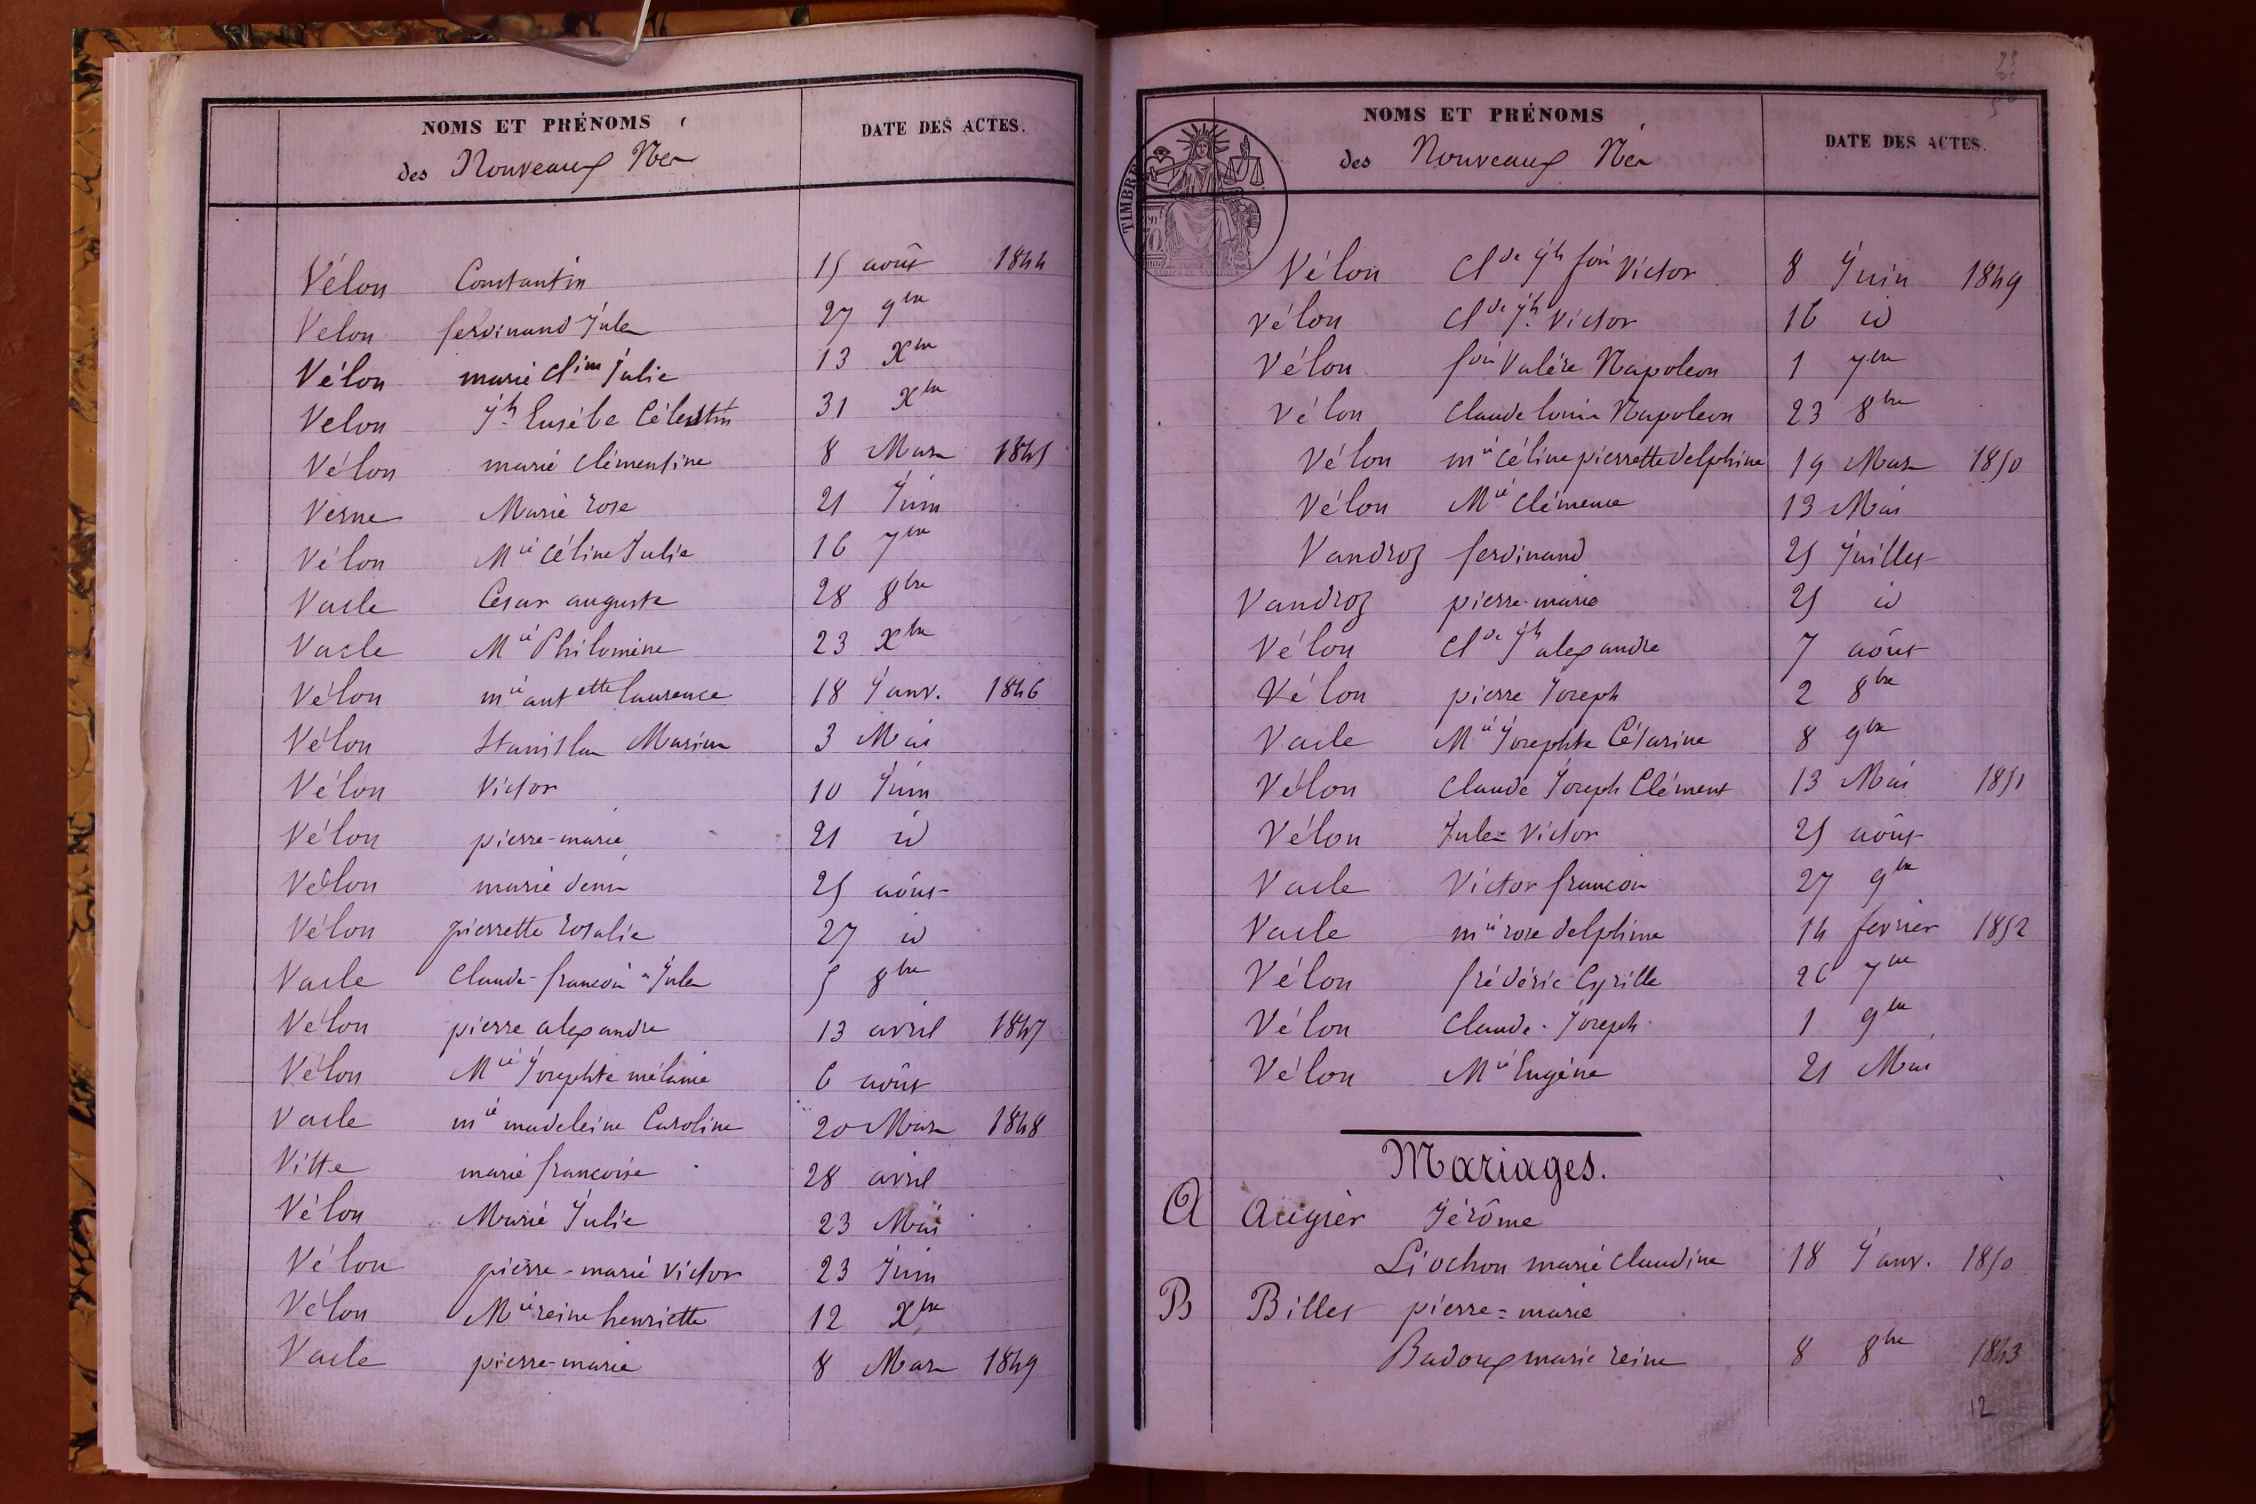 NOMS ET PRÉNOMS
DATE DES ACTES.
des Nouveaux Nés
Vélon Constantin 15 août 1844
Velon ferdinand Jules 27 9bre
Vélon marie Clim Julie 13 Xbre
Velon Jh Eusébe Célestin 31 Xbre
Vélon marie Clémentine 8 Mars 1845
Verne Marie rose 21 Juin
Vélon Mie Céline Julie 16 7bre
Vacle Cesar auguste 28 8bre
Vacle Mie Philomène 23 Xbre
Vélon mie antette laurence 18 Janv. 1846
Vélon Stanislas Marius 3 Mai
Vélon Victor 10 Juin
Vélon pierre-marie 21 id
Vélon marie denis 25 août
Vélon pierrette rosalie 27 id
Vacle Claude-francois-Jules 5 8bre
Vélon pierre alexandre 13 avril 1847
Vélon Mie Josephte mélanie 6 août
Vacle mie madeleine Caroline 20 Mars 1848
Vitte marie francoise 28 avril
Vélon Marie Julie 23 Mai
Vélon pierre-marie Victor 23 Juin
Vélon Mie reine henriette 12 Xbre
Vacle pierre-marie 8 Mars 1849
NOMS ET PRÉNOMS
DATE DES ACTES.
des Nouveaux Nés
TIMBRE
Vélon Clde Jh fois Victor 8 Juin 1849
Vélon Clde Jh Victor 16 id
Vélon fois Valére Napoleon 1 7bre
Vélon Claude louis Napoleon 23 8bre
Vélon mie Céline pierrette delphine 19 Mars 1850
Vélon Mie Clémence 13 Mai
Vandroz ferdinand 25 Juillet
Vandroz pierre-marie 25 id
Vélon Clde Jh alexandre 7 août
Vélon pierre Joseph 2 8bre
Vacle Mie Josephte Césarine 8 9bre
Vélon Claude Joseph Clément 13 Mai 1851
Vélon Jules Victor 25 août
Vacle Victor francois 27 9bre
Vacle mie rose delphine 14 fevrier 1852
Vélon frédéric Cyrille 26 7bre
Vélon Claude-Joseph 1 9bre
Vélon Mie Eugéne 21 Mai
Mariages.
A Augier Jérôme
Liochon marie Claudine 18 Janv. 1850
B Billet pierre=marie
Badoux marie reine 8 8bre 1843
12